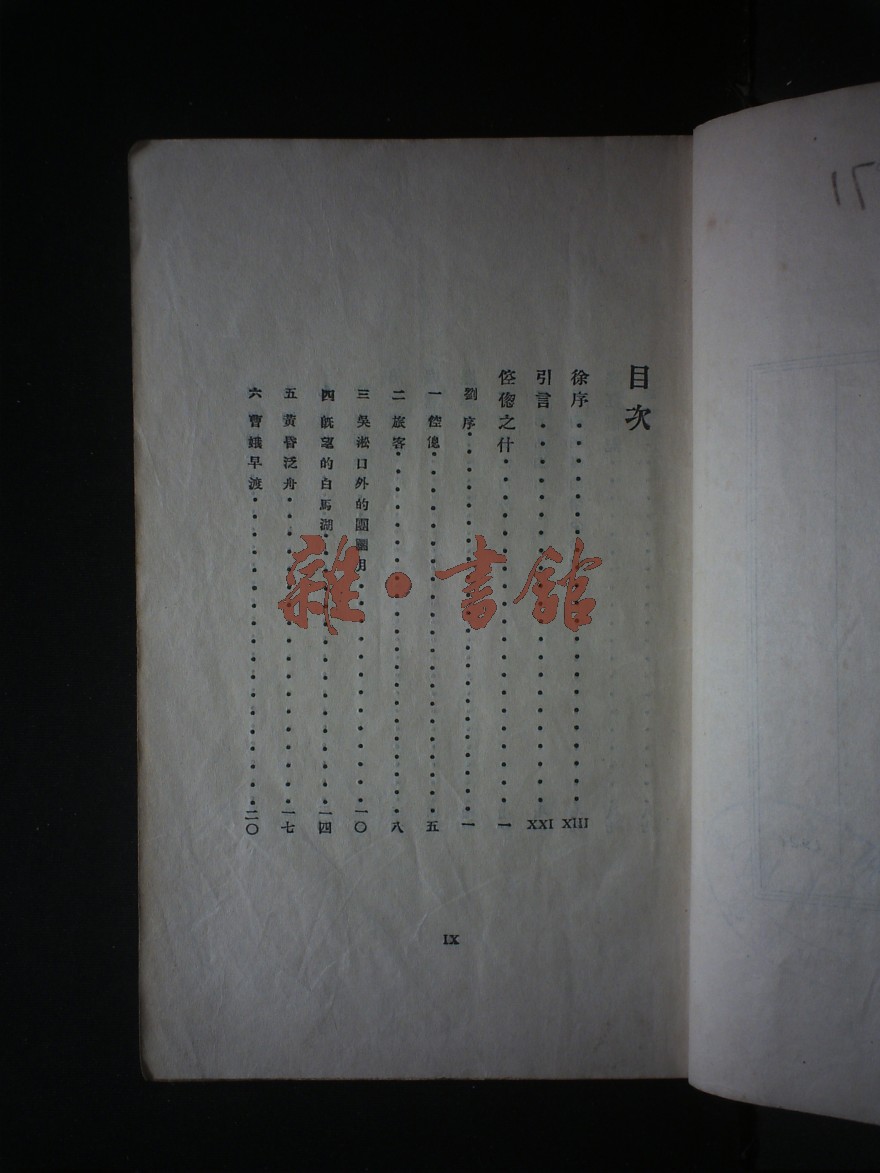 目次
徐序 XIII
引言 XXI
倥偬之什 一
劉序 一
一 倥偬 五
二 旅客 八
三 吳淞口外的團圞月 一〇
四 旣望的白馬湖 一四
五 黃昏泛舟 一七
六 曹娥早渡 二〇
IX
雜·書館
71